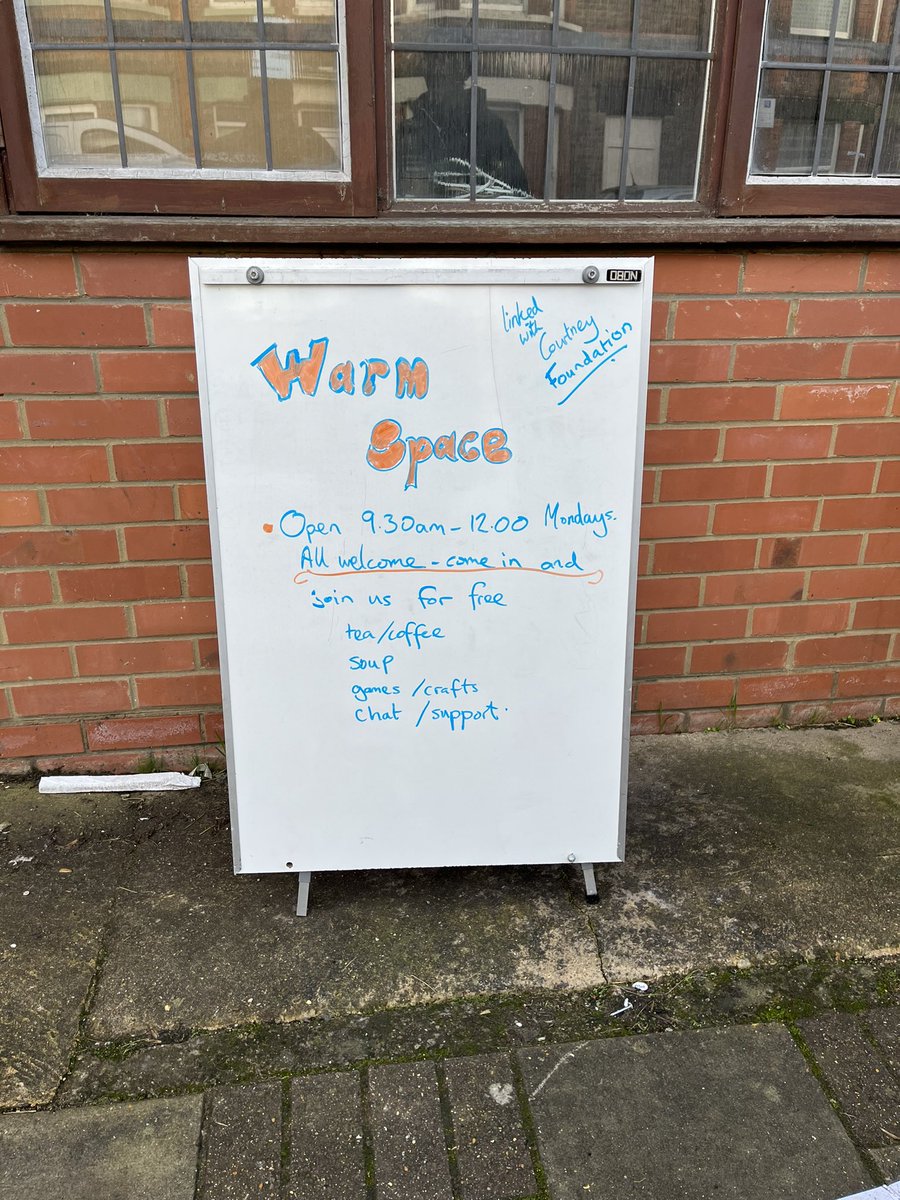 OBON
linked
with
Courtney
Foundation
Warm
Space
Open 9.30am - 12.00 Mondays.
All welcome - come in and
join us for free
tea/coffee
soup
games/crafts
chat/support.